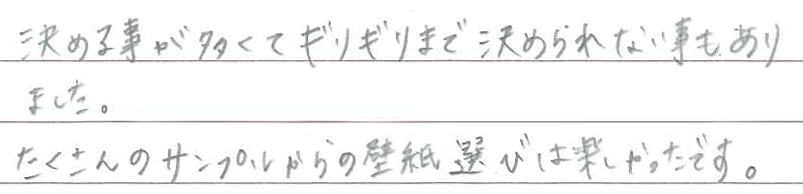 決める事が多くてギリギリまで決められない事もあり
ました。
たくさんのサンプルからの壁紙選びは楽しかったです。